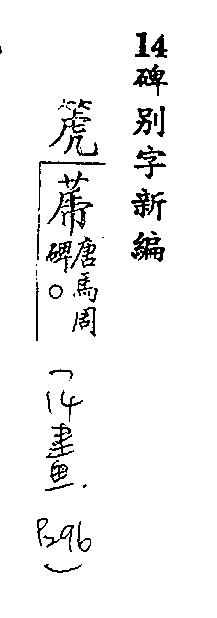 14碑別字新編
箎
唐馬周碑。
(14畫. P296)